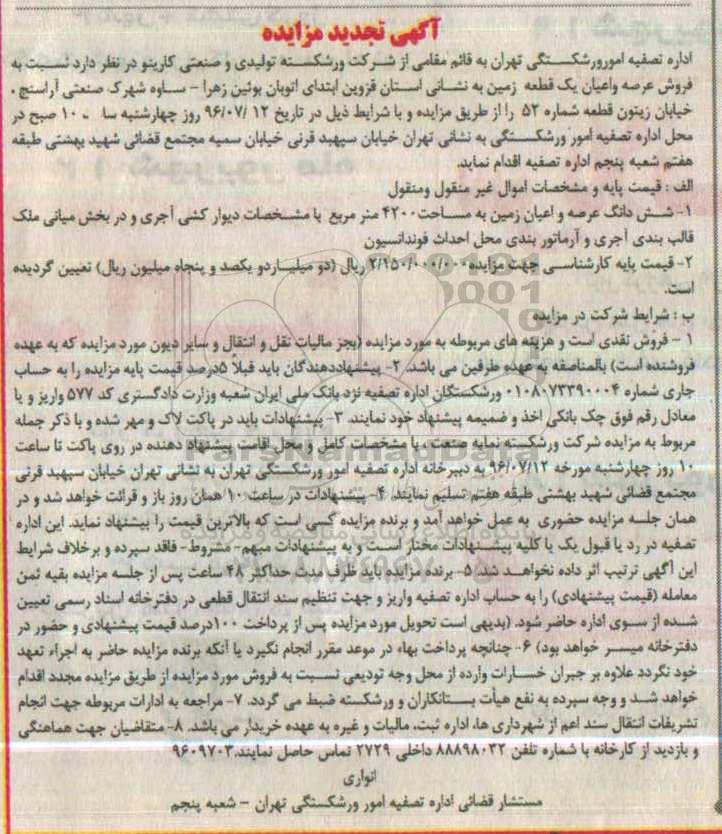 آگهی تجدید مزایده
اداره تصفیه امورورشکستگی تهران به قائم مقامی از شرکت ورشکسته تولیدی و صنعتی کارینو در نظر دارد نسبت به
فروش عرصه واعیان یک قطعه زمین به نشانی استان قزوین ابتدای اتوبان بوئین زهرا - ساوه شهرک صنعتی آراسنج ،
خیابان زیتون قطعه شماره ۵۲ را از طریق مزایده و با شرایط ذیل در تاریخ ۹۶/۰۷/۱۲ روز چهارشنبه سا ۱۰ صبح در
محل اداره تصفیه امور ورشکستگی به نشانی تهران خیابان سپهبد قرنی خیابان سمیه مجتمع قضائی شهید بهشتی طبقه
هفتم شعبه پنجم اداره تصفیه اقدام نماید.
الف : قیمت پایه و مشخصات اموال غیر منقول ومنقول
۱- شش دانگ عرصه و اعیان زمین به مساحت۴۲۰۰ متر مربع با مشخصات دیوار کشی آجری و در بخش میانی ملک
قالب بندی آجری و آرماتور بندی محل احداث فوندانسیون
۲- قیمت پایه کارشناسی جهت مزایده۲/۱۵۰/۰۰۰/۰۰۰ ریال (دو میلیاردو یکصد و پنجاه میلیون ریال) تعیین گردیده
است.
ب : شرایط شرکت در مزایده
۱ - فروش نقدی است و هزینه های مربوطه به مورد مزایده (بجز مالیات نقل و انتقال و سایر دیون مورد مزایده که به عهده
فروشنده است) بالمناصفه به عهده طرفین می باشد. ۲- پیشنهاددهندگان باید قبلاً ۵درصد قیمت پایه مزایده را به حساب
جاری شماره ۰۱۰۸۰۷۳۳۹۰۰۰۴ ورشکستگان اداره تصفیه نزد بانک ملی ایران شعبه وزارت دادگستری کد ۵۷۷ واریز و یا
معادل رقم فوق چک بانکی اخذ و ضمیمه پیشنهاد خود نمایند. ۳- پیشنهادات باید در پاکت لاک و مهر شده و با ذکر جمله
مربوط به مزایده شرکت ورشکسته نمایه صنعت، با مشخصات کامل و محل اقامت پیشنهاد دهنده در روی پاکت تا ساعت
۱۰ روز چهارشنبه مورخه ۹۶/۰۷/۱۲ به دبیرخانه اداره تصفیه امور ورشکستگی تهران به نشانی تهران خیابان سپهبد قرنی
مجتمع قضائی شهید بهشتی طبقه هفتم تسلیم نمایند. ۴- پیشنهادات در ساعت ۱۰ همان روز باز و قرائت خواهد شد و در
همان جلسه مزایده حضوری به عمل خواهد آمد و برنده مزایده کسی است که بالاترین قیمت را پیشنهاد نماید. این اداره
تصفیه در رد یا قبول یک یا کلیه پیشنهادات مختار است و به پیشنهادات مبهم- مشروط- فاقد سپرده و برخلاف شرایط
این آگهی ترتیب اثر داده نخواهد شد. ۵- برنده مزایده باید ظرف مدت حداکثر ۴۸ ساعت پس از جلسه مزایده بقیه ثمن
معامله (قیمت پیشنهادی) را به حساب اداره تصفیه واریز و جهت تنظیم سند انتقال قطعی در دفترخانه اسناد رسمی تعیین
شده از سوی اداره حاضر شود. (بدیهی است تحویل مورد مزایده پس از پرداخت ۱۰۰درصد قیمت پیشنهادی و حضور در
دفترخانه میسر خواهد بود) ۶- چنانچه پرداخت بهاء در موعد مقرر انجام نگیرد یا آنکه برنده مزایده حاضر به اجراء تعهد
خود نگردد علاوه بر جبران خسارات وارده از محل وجه تودیعی نسبت به فروش مورد مزایده از طریق مزایده مجدد اقدام
خواهد شد و وجه سپرده به نفع هیأت بستانکاران و ورشکسته ضبط می گردد. ۷- مراجعه به ادارات مربوطه جهت انجام
تشریفات انتقال سند اعم از شهرداری ها، اداره ثبت، مالیات و غیره به عهده خریدار می باشد. ۸- متقاضیان جهت هماهنگی
و بازدید از کارخانه با شماره تلفن ۸۸۸۹۸۰۳۲ داخلی ۲۷۲۹ تماس حاصل نمایند.۹۶۰۹۷۰۳
انواری
مستشار قضائی اداره تصفیه امور ورشکستگی تهران - شعبه پنجم
ParsNamadData